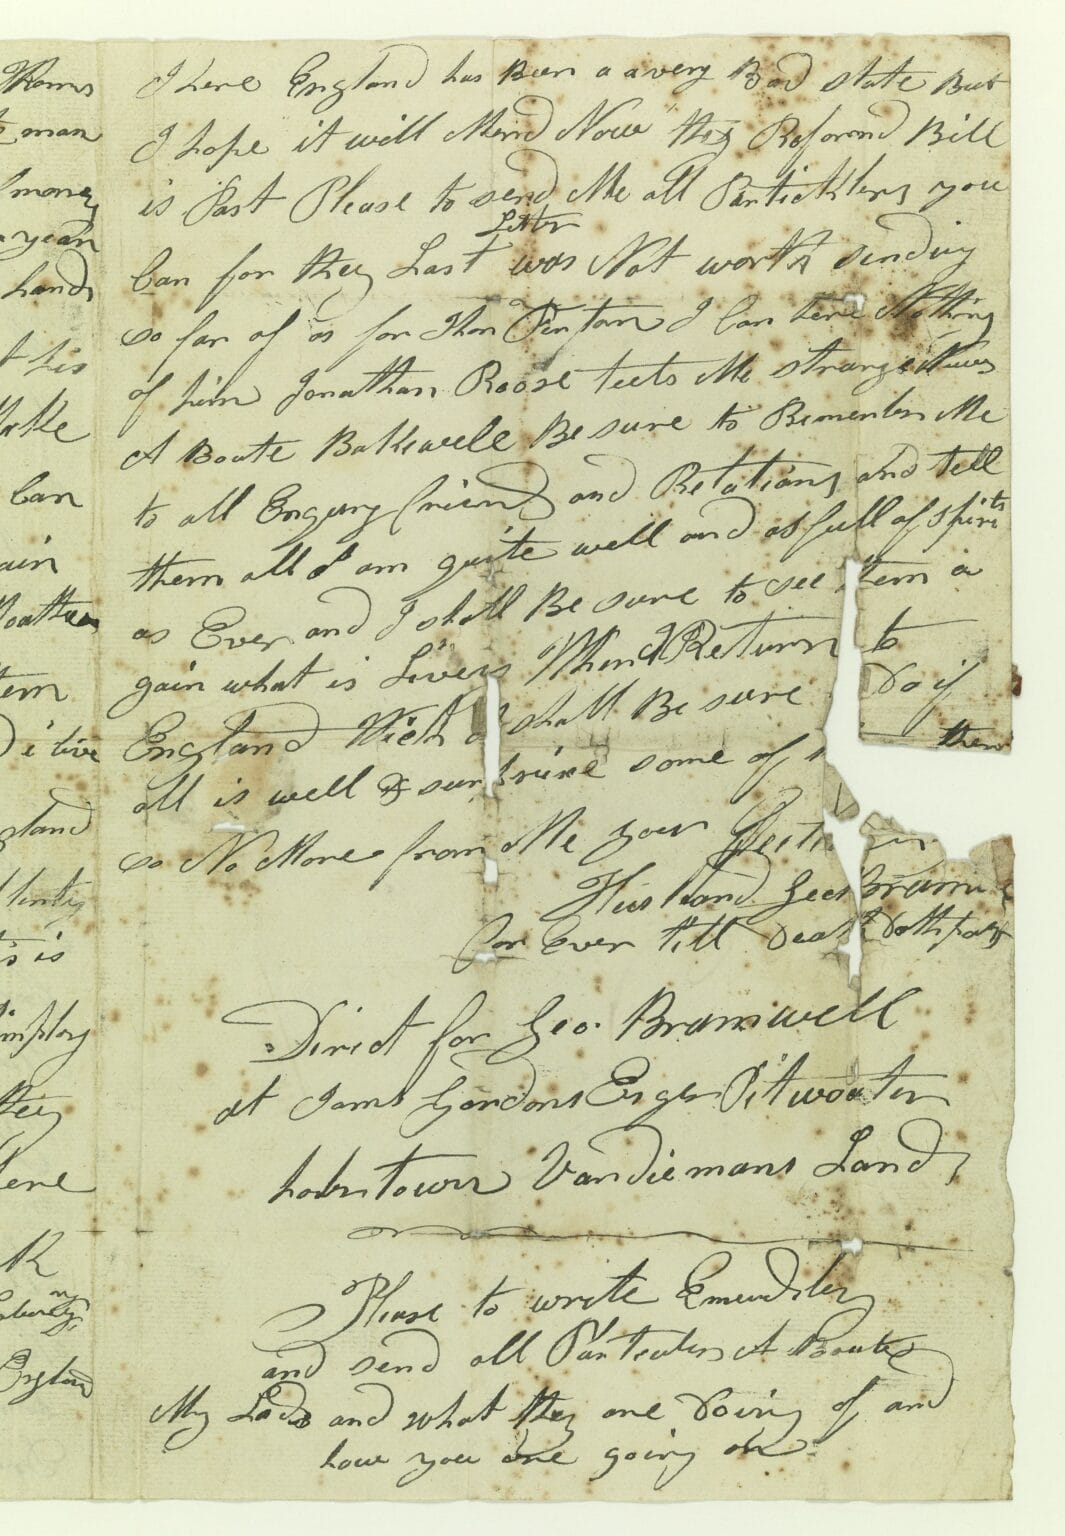 Thoms
man
money
year
hands
his
Make
Can
ain
tem
i live
gland
is
imploy
they
here
England
I here England has Been a avery Bad state But
I hope it will Mend Now they Reformd Bill
is Past Please to send Me all Particklers you
Can for they Last Letter was Not worth sending
so far of as for Thon Fenton I Can here Nothing
of him Jonathan Roose teels Me strange News
A Boute Bakewell Be sure to Rimember Me
to all Enqury friends and Relations and tell
them all I am quite well and as full of spirits
as Ever and I shall Be sure to see tem a
gain what is Livers When I Return to
England Wich I shall Be sure Do if
all is well & surprise some of them
so No More from Me your
Husband Geo Bramw
for Ever till Death Doth part
Dirict for Geo. Bramwell
at Jams Gordons Esqr Pitwoater
hobertown Vandiemans Land
Please to write Emeadtley
and send all Particulers A Boute
My Lads and what they are Doing of and
how you are going on